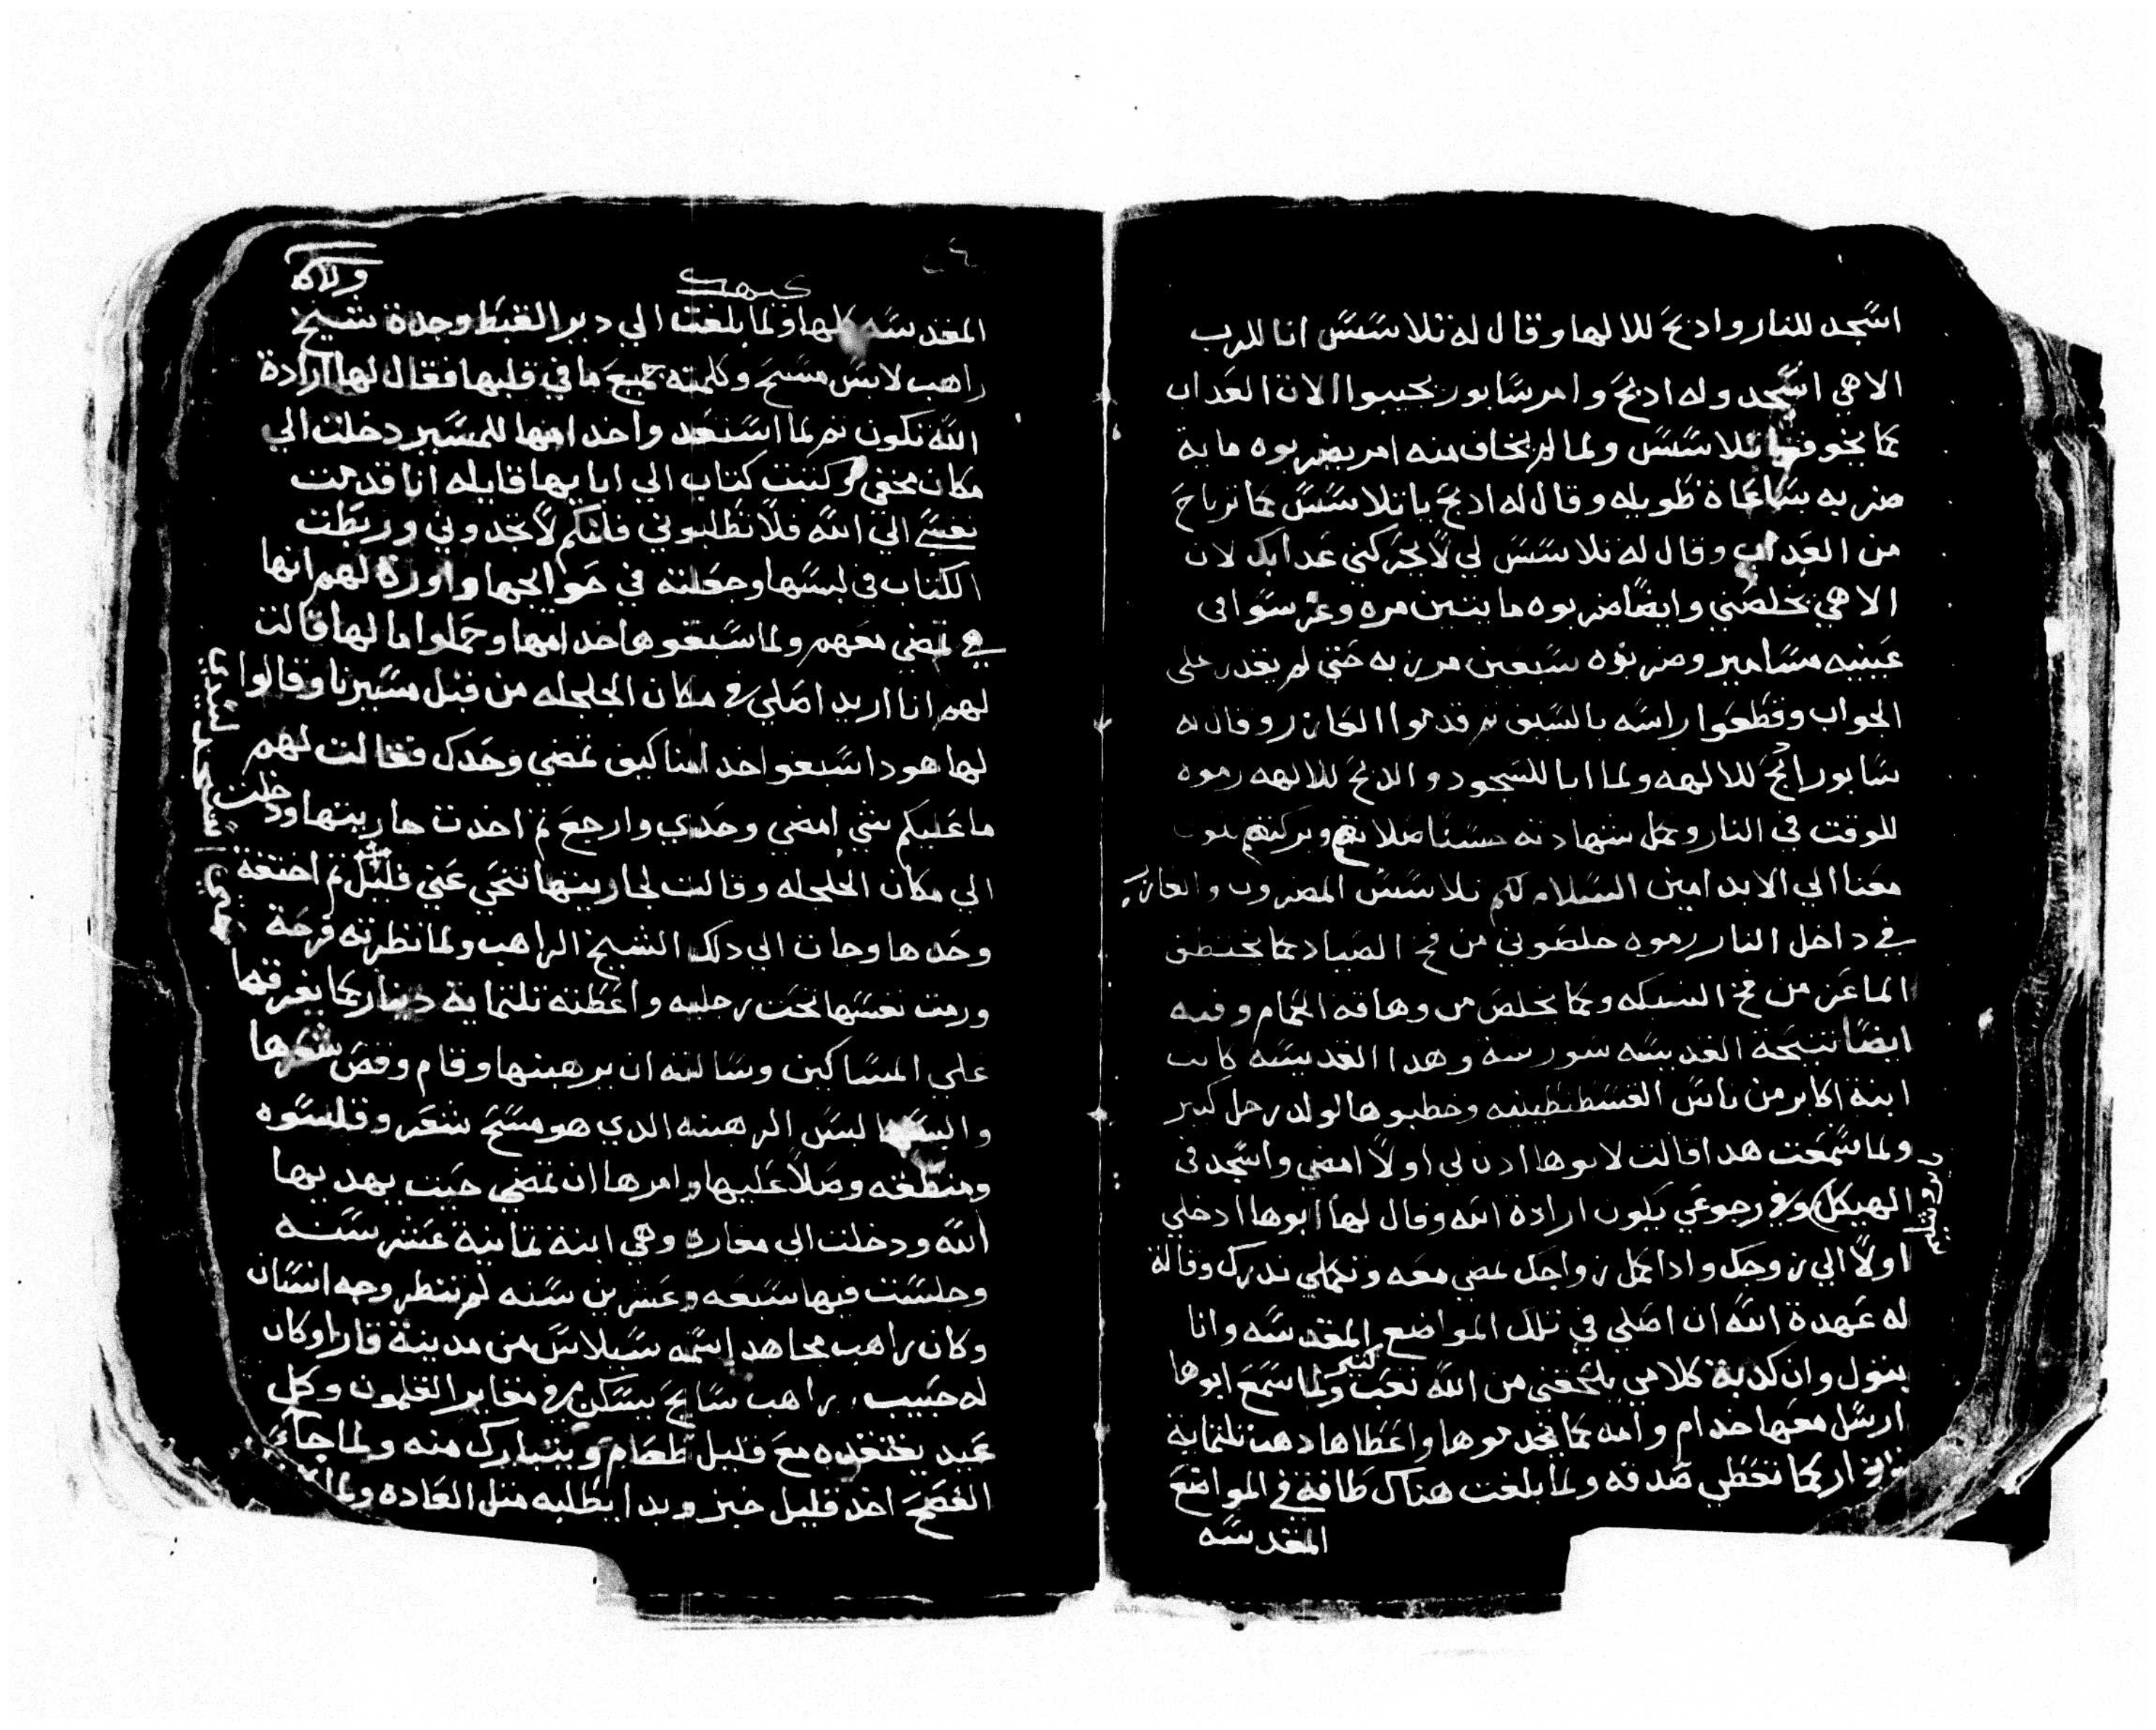 اسجد للنار وادبح للالها وقال له تلاسس انا للرب
الاهي اسجد وله ادبح وامر سابور يجيبوا الات العداب
كما يخوف تلاسس ولما لم يخاف منه امر يضربوه ماية
ضربه بساعاة طويله وقال له ادبح يا تلاسس كما ترتاح
من العداب وقال له تلاسس لي لا يحركني عدابك لان
الاهي يخلصني وايضا ضربوه مايتين مره وغرسوا في
عينيه مسامير وضربوه سبعين مرزبه حتي لم يقدر علي
الجواب وقطعوا راسه بالسيف تم قدموا العازر وقال له
سابور ادبح للالهه ولما ابا للسجود والدبح للالهه رموه
للوقت في النار وكمل شهادته حسنا صلاتهم وبركتهم تكون
معنا الي الابد امين السلام لكم تلاسس المضروب والعازر
في داخل النار رموه خلصوني من فخ الصياد كما يختطف
الماعز من فخ الشبكه وكما يخلص من وهاقه الحمام وفيه
ايضا تنيحة القديسه سوسنة وهدا القديسه كانت
ابنة اكابر من ناس القسطنطينيه وخطبوها لولد رجل كبير
ولما سمعت هدا قالت لابوها ادن لي اولا امضي واسجد في
يروشليم
الهيكل وفي رجوعي يكون ارادة الله وقال لها ابوها ادخلي
اولا الي زوجك وادا كمل زواجك تمضي معه وتكملي ندرك وقالة
له عهدة الله ان اصلي في تلك المواضع المقدسه وانا
بتول وان كدبة كلامي يلحقني من الله تعب كتير ولما سمع ابوها
ارسل معها خدام وامه كما يخدموها واعطاها دهب تلتماية
دينار كما تعطي صدقه ولما بلغت هناك طافة في المواضع
المقدسه
كيهك
المقدسه كلها ولما بلغت الي دير القبط وجدة شيخ
راهب لابس مسح وكلمته جميع ما في قلبها فقال لها ارادة
الله تكون تم لما استعد واخدامها للمسير دخلت الي
مكان مخفي وكتبت كتاب الي ابايها قايله انا قدمت
نفسي الي الله فلا تطلبوني فانكم لا تجدوني وربطت
الكتاب في لبسها وجعلته في حوايجها واورة لهم انها
تمضي معهم ولما سبقوها خدامها وحملوا مالها قالت
لهم انا اريد اصلي في مكان الجلجله من قبل مسيرنا وقالوا
لها هودا سبقوا خدامنا كيف تمضي وحدك فقالت لهم
ما عليكم شي امضي وحدي وارجع تم اخدت جاريتها ودخلت
الي مكان الجلجله وقالت لجاريتها تنحي عني قليل تم اختفة
وحدها وجات الي دلك الشيخ الراهب ولما نظرته فرحة
ورمت نفسها تحت رجليه واعطته تلتماية دينار كما يفرقها
علي المساكين وسالته ان يرهبنها وقام وقص شعرها
والبسها لبس الرهبنه الدي هو مسح شعر وقلسوه
ومنطقه وصلا عليها وامرها ان تمضي حيت يهديها
الله ودخلت الي مغاره وهي ابنة تمانية عشر سنه
وجلست فيها سبعه وعشرين سنه لم تنظر وجه انسان
وكان راهب مجاهد اسمه سيلاس من مدينة فارا وكان
له حبيب راهب سايح يسكن في مغاير القلمون وكل
عيد يفتقده مع قليل طعام ويتبارك منه ولما جاء
الفصح اخد قليل خبز وبدا يطلبه متل العاده ولما